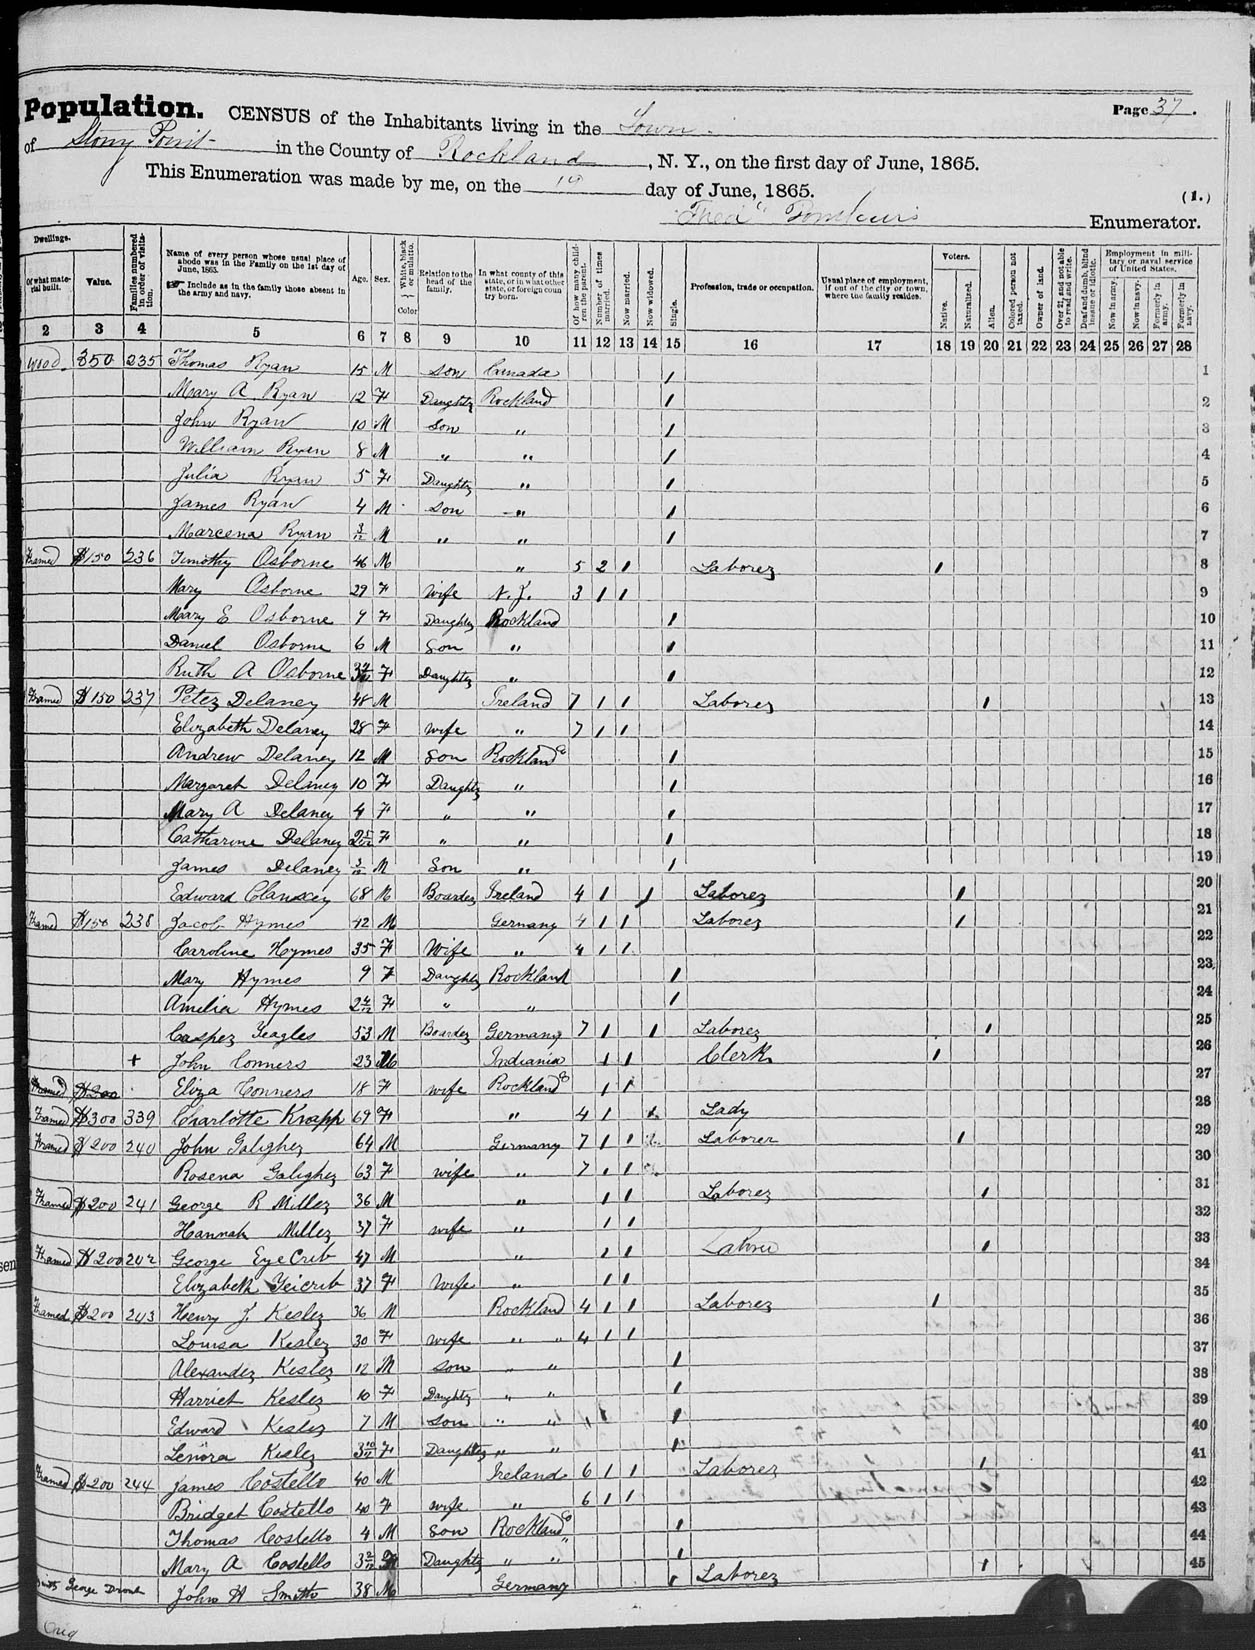 Population. CENSUS of the Inhabitants living in the Town Page 37.
of Stony Point in the County of Rockland, N. Y., on the first day of June, 1865.
This Enumeration was made by me, on the 19 day of June, 1865.
(1.)
Enumerator.
Dwellings. Of what material built. Value. Families numbered in order of visitation. Name of every person whose usual place of abode was in the Family on the 1st day of June, 1865. Include as in the family those absent in the army and navy. Age. Sex. White, black or mulatto. Color Relation to the head of the family. In what county of this state, or in what other state, or foreign country born. Of how many children the parent. Number of times married. Now married. Now widowed. Single. Profession, trade or occupation. Usual place of employment, if out of the city or town, where the family resides. Voters. Native. Naturalized. Alien. Colored person not taxed. Owner of land. Over 21, and not able to read and write. Deaf and dumb, blind insane or idiotic. Employment in military or naval service of United States. Now in army. Now in navy. Formerly in army. Formerly in navy.
2 3 4 5 6 7 8 9 10 11 12 13 14 15 16 17 18 19 20 21 22 23 24 25 26 27 28
Wood. 350 235 Thomas Ryan 15 M Son Canada 1 1
Mary A Ryan 12 F Daughter Rockland 1 2
John Ryan 10 M Son " 1 3
William Ryan 8 M " " 1 4
Julia Ryan 5 F Daughter " 1 5
James Ryan 4 M Son " 1 6
Marcena Ryan 3/12 M " " 1 7
Framed $150 236 Timothy Osborne 46 M " 5 2 1 Laborer 1 8
Mary Osborne 29 F Wife N.J. 3 1 1 9
Mary E Osborne 9 F Daughter Rockland 1 10
Daniel Osborne 6 M Son " 1 11
Ruth A Osborne F Daughter " 1 12
Framed $150 237 Peter Delaney 48 M Ireland 7 1 1 Laborer 1 13
Elizabeth Delaney 28 F Wife " 7 1 1 14
Andrew Delaney 12 M Son Rockland Co 1 15
Margaret Delaney 10 F Daughter " 1 16
Mary A Delaney 4 F " " 1 17
Catharine Delaney 2 5/12 F " " 1 18
James Delaney 3/12 M Son " 1 19
Edward Clanscey 68 M Boarder Ireland 4 1 1 Laborer 1 20
Framed $150 238 Jacob Hymes 42 M Germany 4 1 1 Laborer 1 21
Caroline Hymes 35 F Wife " 4 1 1 22
Mary Hymes 9 F Daughter Rockland 1 23
Amelia Hymes F " " 1 24
Casper Yeagles 53 M Boarder Germany 7 1 1 Laborer 1 25
+ John Conners 23 M Indiania 1 1 Clerk 1 26
Framed $200 Eliza Conners 18 F wife Rockland Co 1 1 27
Framed $300 339 Charlotte Knapp 69 F " 4 1 1 Lady 28
Framed $200 240 John Galigher 64 M Germany 7 1 1 Laborer 1 29
Rosena Galigher 63 F wife " 7 1 1 30
Framed $200 241 George R Miller 36 M " 1 1 Laborer 1 31
Hannah Miller 37 F wife " 1 1 32
Framed $200 242 George EyeCrib 47 M " 1 1 1 33
Elizabeth Yeicrib 37 F Wife " 1 1 34
Framed $200 243 Henry J. Kesler 36 M Rockland 4 1 1 Laborer 1 35
Louisa Kesler 30 F wife " " 4 1 1 36
Alexander Kesler 12 M son " " 1 37
Harriet Kesler 10 F Daughter " " 1 38
Edward Kesler 7 M Son " " 1 39
Lenora Kesler 3 10/12 F Daughter " " 1 40
Framed $200 244 James Costello 40 M Ireland 6 1 1 Laborer 1 41
Bridget Costello 40 F wife " 6 1 1 42
Thomas Costello 4 M Son Rockland Co 1 43
Mary A Costello F Daughter " " 1 44
George John H Smith 38 M Germany 1 Laborer 1 45
Orig